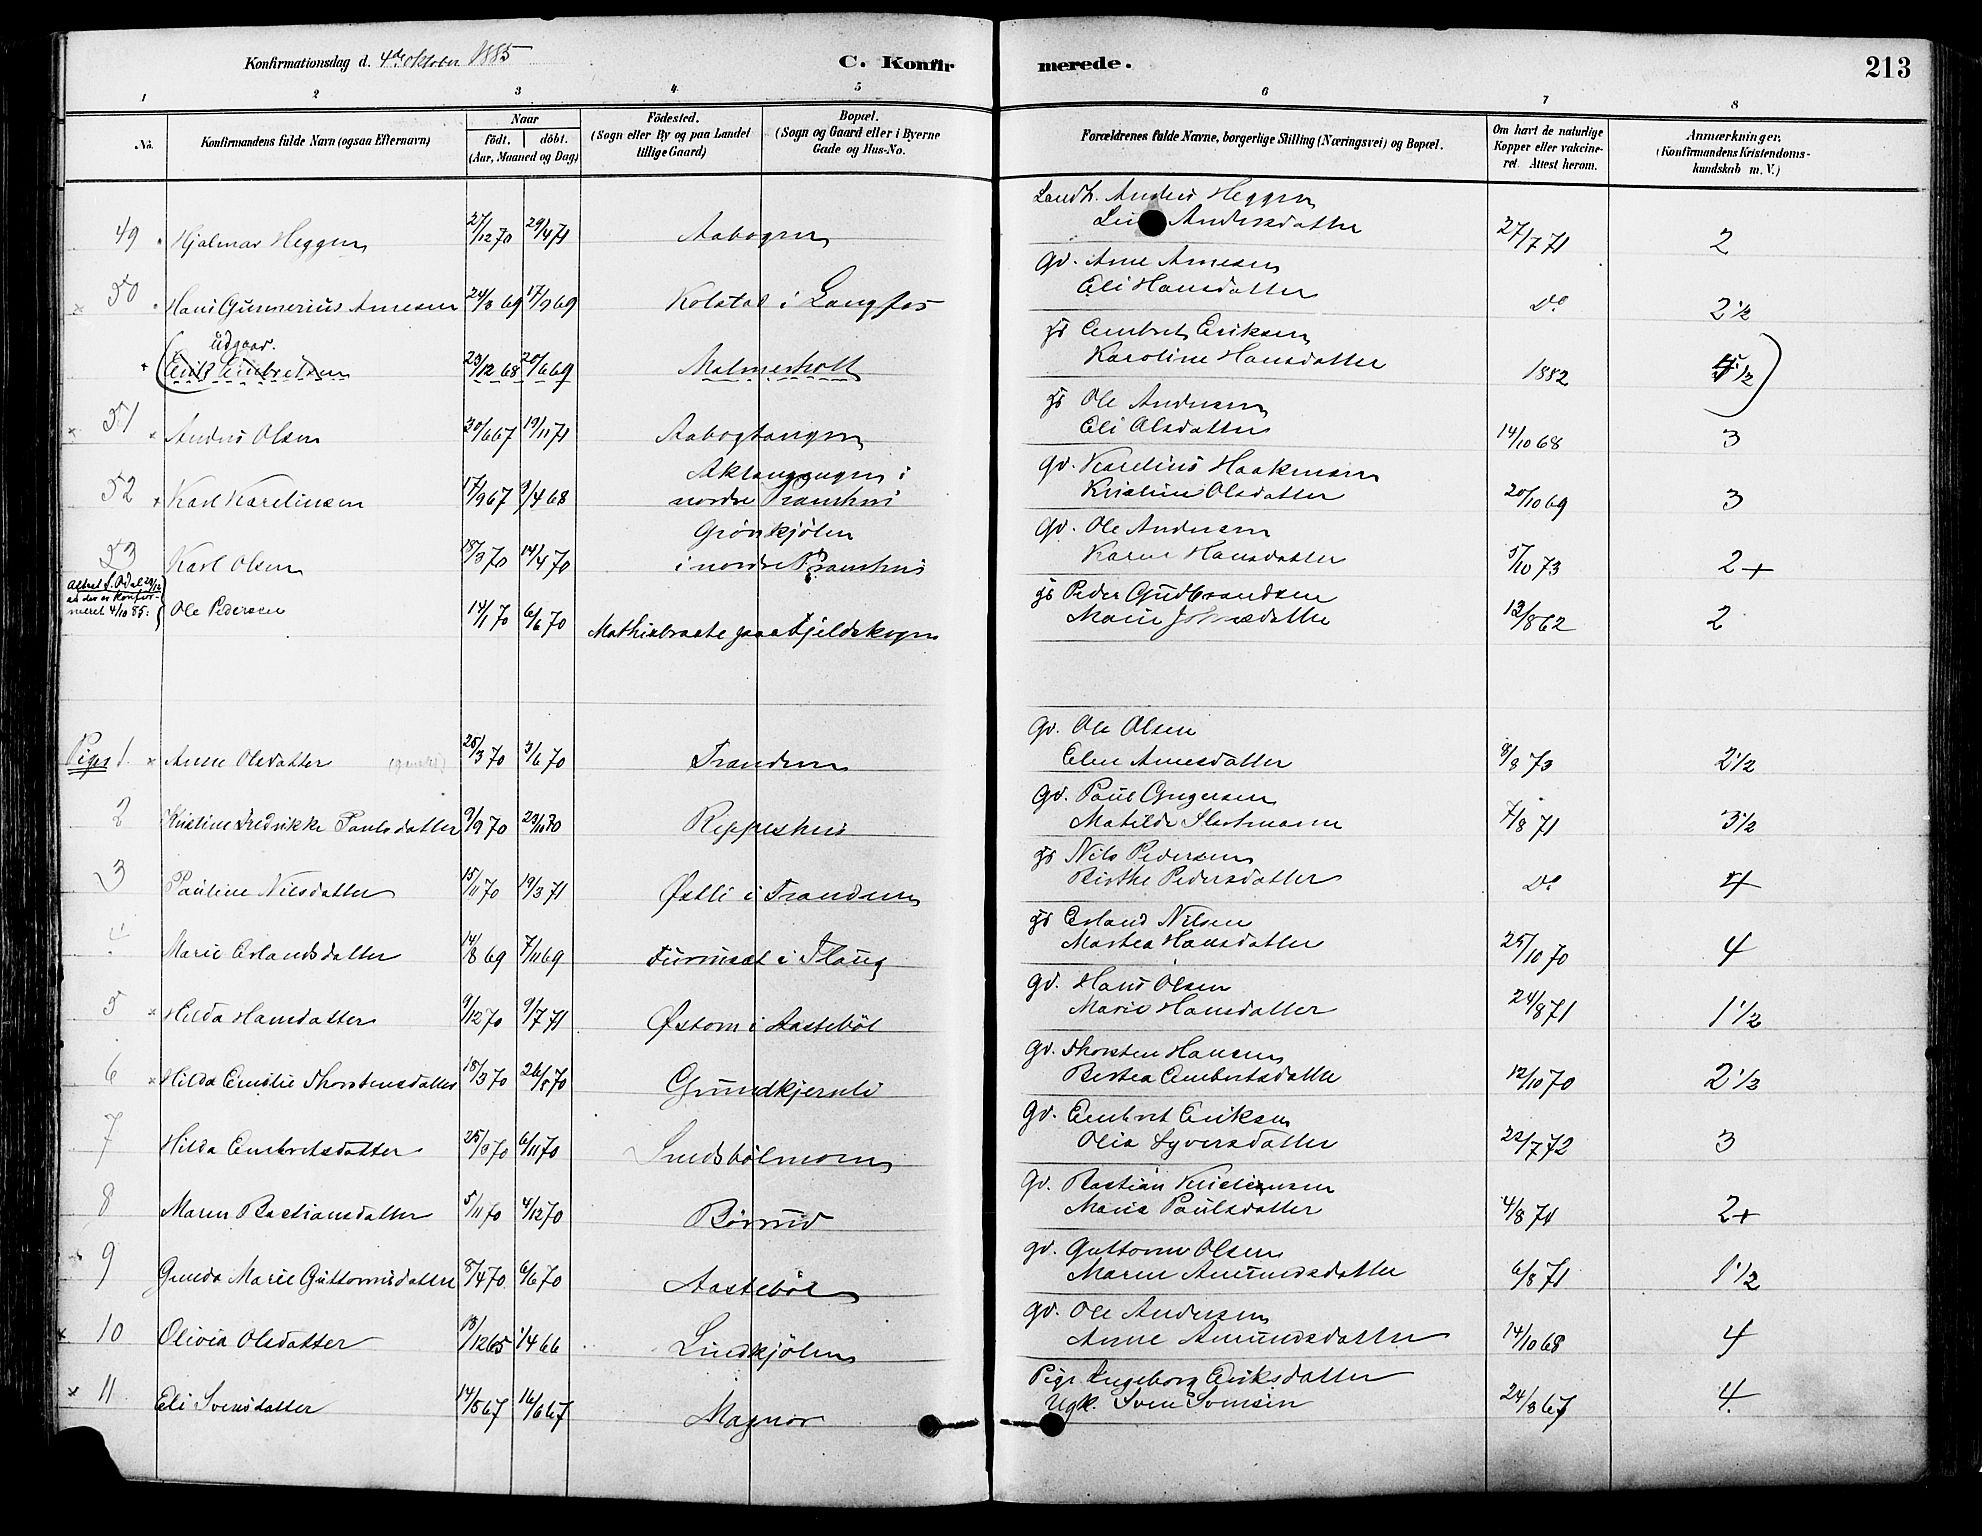 Konfirmationsdag d. 4de Oktober 1885
C. Konfirmerede.
213
1 2 3 4 5 6 7 8
No.
Konfirmandens fulde Navn (ogsaa Efternavn)
Naar
født. døbt.
(Aar, Maaned og Dag)
Fødested.
(Sogn eller By og paa Landet
tillige Gaard)
Bopæl.
(Sogn og Gaard eller i Byerne
Gade og Hus-No.
Forældrenes fulde Navne, borgerlige Stilling (Næringsvei) og Bopæl.
Om havt de naturlige
Kopper eller vakcine-
ret. Attest herom.
Anmærkninger.
(Konfirmandens Kristendoms-
kundskab m. V.)
Landh. Anders Heggen
49 Hjalmar Heggen 27/12 70 29/4 71 Aabogen Andersdatter 27/7 71 2
Gd. Arne Arnesen
50 Hans Gunnerius Arnesen 24/8 69 17/9 69 Kolstad i Langfos Eli Hansdatter Do 2 1/2
Udgaar.
gs Embret Eriksen
(Erik Embretsen 29/12 68 20/6 69 Malmerholt Karoline Hansdatter 1882
gs Ole Andersen
51 Anders Olsen 30/6 67 19/11 71 Aabogtangen Eli Olsdatter 14/10 68 3
i
Gd. Karelius Haakensen
52 Karl Karelinsen 17/9 67 9/4 68 nordre Pramhus Kristine Olsdatter 20/10 69 3
Grønkjølen
Gd. Ole Andersen
53 Karl Olsen 18/3 70 14/4 70 i nordre Pramhus Karen Hansdatter 5/10 73 2+
gs Peder Gudbrandsen
meret 4/10 85: Ole Pedersen 14/1 70 6/6 70 Mathisbraate paa Fjeldskogen Marie 13/8 62 2
Gd. Ole Olsen
Piger 1. Anne Olsdatter 25/3 70 3/6 70 Trandem Elen Arnesdatter 8/8 73 2 1/2
Gd. Paul
2 Kristine Fredrikke Paulsdatter 9/9 70 23/10 70 Rippeshus Matilde Slastmoen 7/8 71 3 1/2
gs Nils Pedersen
3 Pauline Nilsdatter 15/11 70 19/3 71 Østli i Trandem Birthe Pedersdatter Do 4
gs Erland Nilsen
4 Marie Erlandsdatter 14/8 69 7/11 69 Furuset i Flaug Martea Hansdatter 25/10 70 4
Gd. Hans Olsen
5 Hilda Hansdatter 9/12 70 9/7 71 Østom i Aastebøl Marie Hansdatter 24/8 71 1 1/2
Gd. Thorsten Hansen
6 Hilda Emilie Thorstensdatter 18/3 70 26/5 70 Grundkjernli Bertea Embretsdatter 12/10 70 2 1/2
Gd. Embret Eriksen
7 Hilda Embretsdatter 25/9 70 6/11 70 Lundsbølmoen Olia Syversdatter 22/7 72 3
Gd. Bastian Kristiansen
8 Maren Bastiansdatter 5/11 70 4/12 70 Børrud Maria Paulsdatter 4/8 71 2+
Gd. Guttorm Olsen
9 Gunda Marie Guttormsdatter 8/4 70 6/6 70 Aastebøl Maren Amundsdatter 6/8 71 1 1/2
Gd. Ole Andersen
10 Olivia Olsdatter 18/12 65 1/4 66 Lindkjølen Anne Amundsdatter 14/10 68 4
Pige Ingeborg Eriksdatter
11 Eli Svensdatter 14/5 67 16/6 67 Magnor Ugk. Sven Svensen 24/8 67 4.